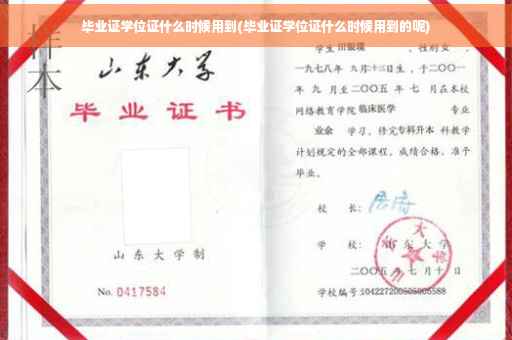 毕业证学位证什么时候用到(毕业证学位证什么时候用到的呢)
样本
山东大学
毕业证书
山东大学制
No. 0417584
学生 田银瑛 ，性别女 ，
一九七八年 九月十三日生，于二〇〇一
年 九 月至二〇〇五 年 七 月在本校
网络教育学院 临床医学 专业
业余 学习，修完专科升本 科教学
计划规定的全部课程，成绩合格，准予
毕业。
校 长：
学 校： 山东大学
二〇〇五 年 七 月 十 日
学校编号:104227200505005588